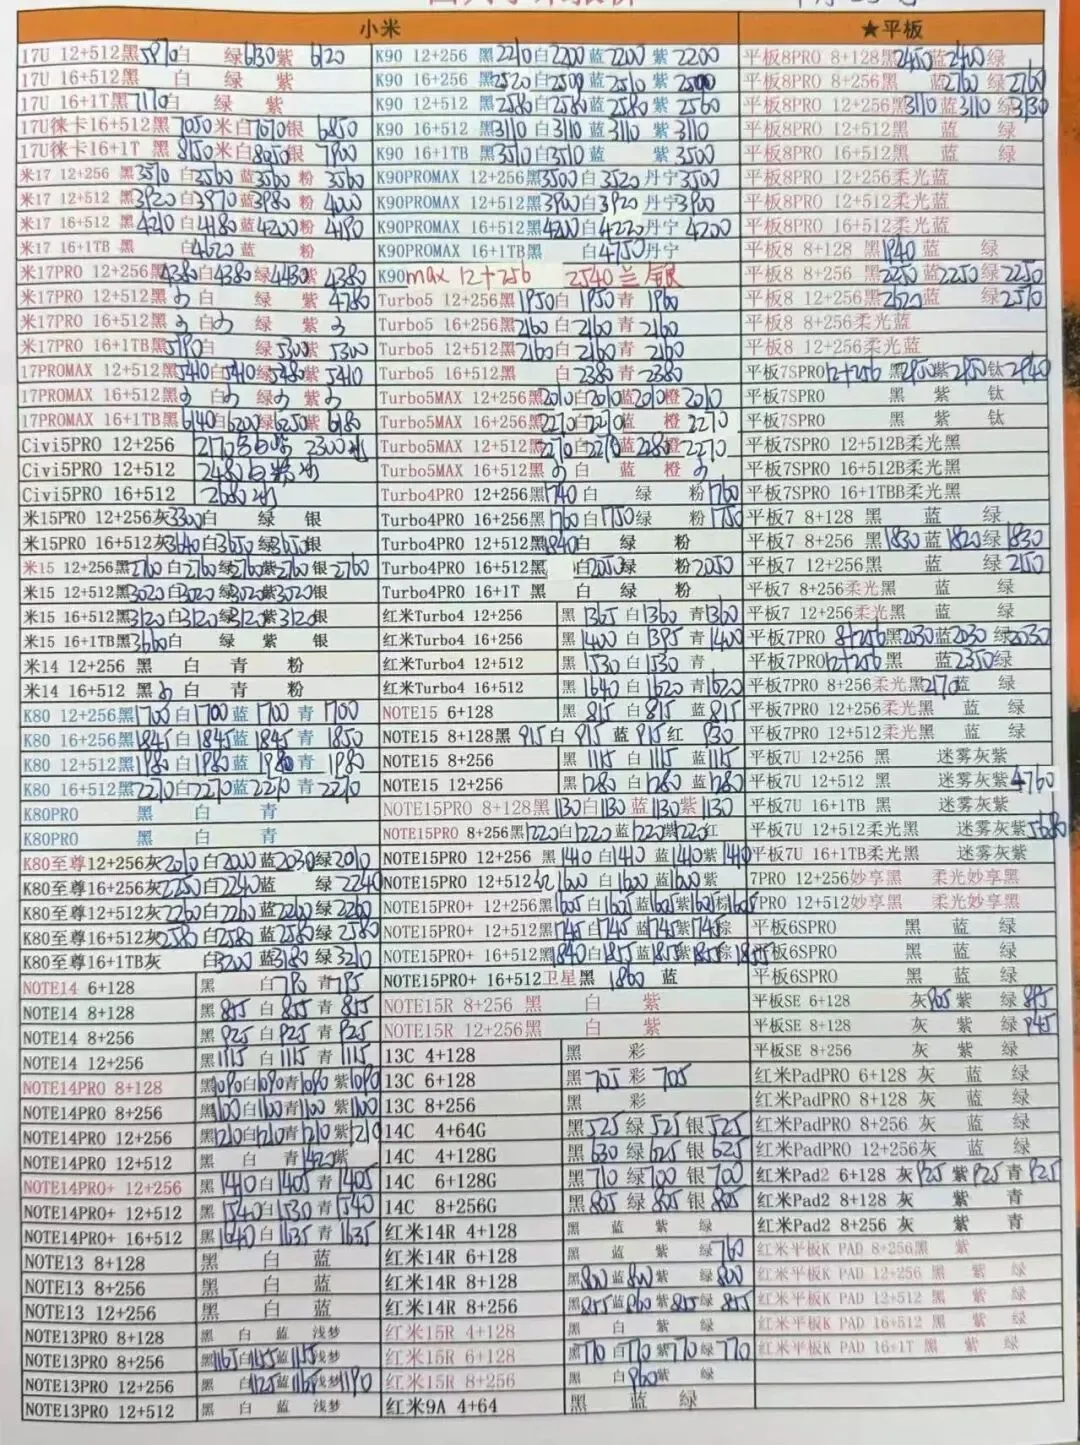 小米
17U 12+512黑5970白 绿6130紫 6120
17U 16+512黑 白 绿 紫
17U 16+1T黑7170白 绿 紫
17U徕卡16+512黑7050米白7070银 6850
17U徕卡16+1T 黑8150米白8050银7900
米17 12+256 黑3570白3560蓝3560粉 3560
米17 12+512 黑3920白3970蓝3980粉 4000
米17 16+512 黑4210白4180蓝4200粉 4190
米17 16+1TB 黑 白4620蓝 粉
米17PRO 12+256黑4380白4380绿4430紫4380
米17PRO 12+512黑 白 绿 紫4780
米17PRO 16+512黑 白 绿 紫
米17PRO 16+1TB黑5190白 绿5300紫 5300
17PROMAX 12+512黑5410白5410绿5480紫5410
17PROMAX 16+512黑 白 绿 紫
17PROMAX 16+1TB黑6140白6200绿6250紫6180
Civi5PRO 12+256
Civi5PRO 12+512
Civi5PRO 16+512
米15PRO 12+256灰3300白 绿 银
米15PRO 16+512灰3640白3650绿3650银
米15 12+256黑2760白2760绿2760紫2760银2760
米15 12+512黑3020白3020绿3020紫3020银
米15 16+512黑3120白3120绿3120紫3120银
米15 16+1TB黑3660白 绿 紫 银
米14 12+256 黑 白 青 粉
米14 16+512 黑 白 青 粉
K80 12+256黑1700白1700蓝1700青1700
K80 16+256黑1845白1845蓝1845青1850
K80 12+512黑1980白1980蓝1980青1980
K80 16+512黑2270白2270蓝2270青2270
K80PRO 黑 白 青
K80PRO 黑 白 青
K80至尊12+256灰2010白2000蓝2030绿2010
K80至尊16+256灰2250白2240蓝 绿2240
K80至尊12+512灰2260白2260蓝2260绿2260
K80至尊16+512灰2580白2580蓝2580绿2580
K80至尊16+1TB灰 白3200蓝3180绿3210
NOTE14 6+128 黑 白795青795
NOTE14 8+128 黑855白855青855
NOTE14 8+256 黑925白925青925
NOTE14 12+256 黑1115白1115青1115
NOTE14PRO 8+128 黑1090白1090青1090紫1090
NOTE14PRO 8+256 黑1100白1100青1100紫1100
NOTE14PRO 12+256 黑1210白1210青1210紫1210
NOTE14PRO 12+512 黑 白 青1420紫
NOTE14PRO+ 12+256 黑1410白1405青1405
NOTE14PRO+ 12+512 黑1540白1530青1540
NOTE14PRO+ 16+512 黑1640白1635青1635
NOTE13 8+128 黑 白 蓝
NOTE13 8+256 黑 白 蓝
NOTE13 12+256 黑 白 蓝
NOTE13PRO 8+128 黑 白 蓝 浅梦
NOTE13PRO 8+256 黑1165白1155蓝1155浅梦
NOTE13PRO 12+256 黑 白1125蓝1165浅梦1190
NOTE13PRO 12+512 黑 白 蓝 浅梦
K90 12+256 黑2210白2200蓝2200紫2200
K90 16+256 黑2520白2509蓝2510紫2500
K90 12+512 黑2580白2580蓝2580紫2560
K90 16+512 黑3110白3110蓝3110紫3110
K90 16+1TB 黑3510白3510蓝 紫3500
K90PROMAX 12+256黑3500白3520丹宁3500
K90PROMAX 12+512黑3900白3920丹宁3900
K90PROMAX 16+512黑4200白4220丹宁4200
K90PROMAX 16+1TB黑 白4750丹宁
K90max 12+256 2540兰/银
Turbo5 12+256黑1950白1950青1960
Turbo5 16+256黑2160白2160青2160
Turbo5 12+512黑2160白2160青2160
Turbo5 16+512黑 白2380青2380
Turbo5MAX 12+256黑2010白2010蓝2010橙2010
Turbo5MAX 16+256黑2270白2270蓝 橙2270
Turbo5MAX 12+512黑2270白2270蓝2280橙2270
Turbo5MAX 16+512黑 白 蓝 橙
Turbo4PRO 12+256黑1740白 绿 粉1760
Turbo4PRO 16+256黑1760白1750绿 粉1750
Turbo4PRO 12+512黑1840白 绿 粉
Turbo4PRO 16+512黑 白2050绿 粉2050
Turbo4PRO 16+1T 黑 白 绿
红米Turbo4 12+256 黑1365白1360青1360
红米Turbo4 16+256 黑1400白1395青1400
红米Turbo4 12+512 黑1530白1530青
红米Turbo4 16+512 黑1640白1620青1620
NOTE15 6+128 黑815白815蓝815
NOTE15 8+128黑915白915蓝915红930
NOTE15 8+256 黑1115白1115蓝1115
NOTE15 12+256 黑1280白1280蓝1280
NOTE15PRO 8+128黑1130白1130蓝1130紫1130
NOTE15PRO 8+256黑1220白1220蓝1220紫1220红
NOTE15PRO 12+256 黑1410白1410蓝1410紫1410
NOTE15PRO 12+512红1600白1600蓝1600紫
NOTE15PRO+ 12+256黑1605白1625蓝1625紫1625棕1605
NOTE15PRO+ 12+512黑1745白1745蓝1745紫1745棕
NOTE15PRO+ 16+512黑1840白1855蓝1855紫1855棕1855
NOTE15PRO+ 16+512卫星黑1860蓝
NOTE15R 8+256 黑 白 紫
NOTE15R 12+256黑 白 紫
13C 4+128 黑 彩
13C 6+128 黑705彩705
13C 8+256 黑 彩
14C 4+64G 黑525绿525银525
14C 4+128G 黑630绿625银625
14C 6+128G 黑710绿700银700
14C 8+256G 黑805绿805银805
红米14R 4+128 黑 蓝 紫 绿
红米14R 6+128 黑 蓝 紫 绿760
红米14R 8+128 黑800蓝800紫 绿800
红米14R 8+256 黑855蓝860紫855绿855
红米15R 4+128 黑 白 紫 绿
红米15R 6+128 黑770白770紫770绿770
红米15R 8+256 黑 白960紫 绿
红米9A 4+64 黑 蓝 绿
★平板
平板8PRO 8+128黑2450蓝2400绿
平板8PRO 8+256黑 蓝2760绿2760
平板8PRO 12+256黑3110蓝3110绿3130
平板8PRO 12+512黑 蓝 绿
平板8PRO 16+512黑 蓝 绿
平板8PRO 12+256柔光蓝
平板8PRO 12+512柔光蓝
平板8PRO 16+512柔光蓝
平板8 8+128 黑1940蓝 绿
平板8 8+256 黑2250蓝2250绿2250
平板8 12+256黑2520蓝 绿2510
平板8 8+256柔光蓝
平板8 12+256柔光蓝
平板7SPRO12+256黑2950紫2950钛2940
平板7SPRO 黑 紫 钛
平板7SPRO 黑 紫 钛
平板7SPRO 12+512B柔光黑
平板7SPRO 16+512B柔光黑
平板7SPRO 16+1TBB柔光黑
平板7 8+128 黑 蓝 绿
平板7 8+256 黑1830蓝1820绿1830
平板7 12+256黑 蓝 绿2150
平板7 8+256柔光黑 蓝 绿
平板7 12+256柔光黑 蓝 绿
平板7PRO 8+256黑2030蓝2030绿2030
平板7PRO12+256黑 蓝2350绿
平板7PRO 8+256柔光黑2170蓝 绿
平板7PRO 12+256柔光黑 蓝 绿
平板7PRO 12+512柔光黑 蓝 绿
平板7U 12+256 黑 迷雾灰紫
平板7U 12+512 黑 迷雾灰紫4760
平板7U 16+1TB 黑 迷雾灰紫
平板7U 12+512柔光黑 迷雾灰紫5680
平板7U 16+1TB柔光黑 迷雾灰紫
7PRO 12+256妙享黑 柔光妙享黑
7PRO 12+512妙享黑 柔光妙享黑
平板6SPRO 黑 蓝 绿
平板6SPRO 黑 蓝 绿
平板6SPRO 黑 蓝 绿
平板SE 6+128 灰905紫 绿895
平板SE 8+128 灰 紫 绿945
平板SE 8+256 灰 紫 绿
红米PadPRO 6+128 灰 蓝 绿
红米PadPRO 8+128 灰 蓝 绿
红米PadPRO 8+256 灰 蓝 绿
红米PadPRO 12+256灰 蓝 绿
红米Pad2 6+128 灰925紫925青925
红米Pad2 8+128 灰 紫 青
红米Pad2 8+256 灰 紫 青
红米平板K PAD 8+256黑 紫
红米平板K PAD 12+256 黑 紫 绿
红米平板K PAD 12+512 黑 紫 绿
红米平板K PAD 16+512 黑 紫 绿
红米平板K PAD 16+1T 黑 紫 绿